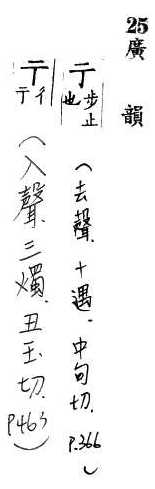 25 廣韻
亍 步止也 (去聲.十遇.中句切.P.366)
亍 彳亍 (入聲.三燭.丑玉切.P463)